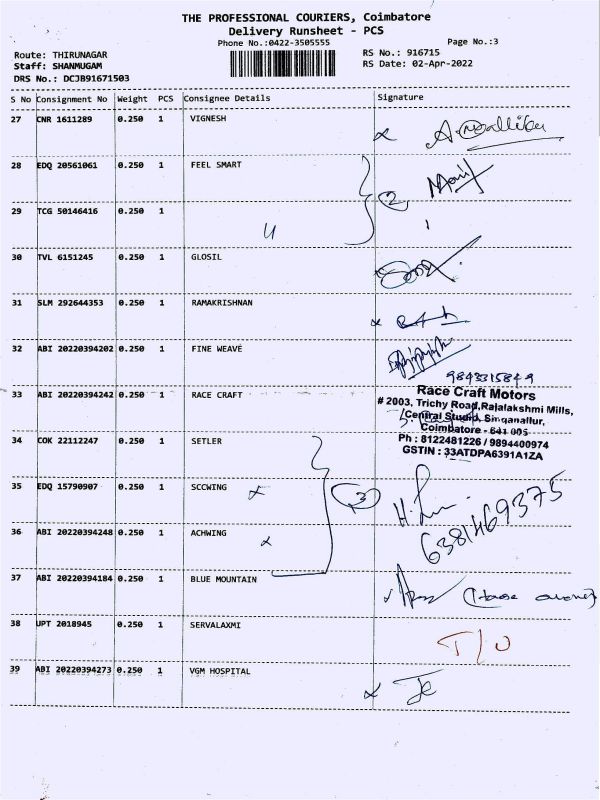 THE PROFESSIONAL COURIERS, Coimbatore
Delivery Runsheet - PCS
Phone No.:0422-3505555
Page No.:3
Route: THIRUNAGAR
RS No.: 916715
Staff: SHANMUGAM
RS Date: 02-Apr-2022
DRS No.: DCJB91671503
S No Consignment No Weight PCS Consignee Details Signature
27 CNR 1611289 0.250 1 VIGNESH
28 EDQ 20561061 0.250 1 FEEL SMART
2
29 TCG 50146416 0.250 1
30 TVL 6151245 0.250 1 GLOSIL
31 SLM 292644353 0.250 1 RAMAKRISHNAN
32 ABI 20220394202 0.250 1 FINE WEAVE
9843315849
33 ABI 20220394242 0.250 1 RACE CRAFT
Race Craft Motors
# 2003, Trichy Road,Rajalakshmi Mills,
Central Studio, Singanallur,
Coimbatore - 641 005
Ph : 8122481226 / 9894400974
GSTIN : 33ATDPA6391A1ZA
34 COK 22112247 0.250 1 SETLER
35 EDQ 15790907 0.250 1 SCCWING
3
6381469375
36 ABI 20220394248 0.250 1 ACHWING
37 ABI 20220394184 0.250 1 BLUE MOUNTAIN
38 UPT 2018945 0.250 1 SERVALAXMI
T/O
39 ABI 20220394273 0.250 1 VGM HOSPITAL